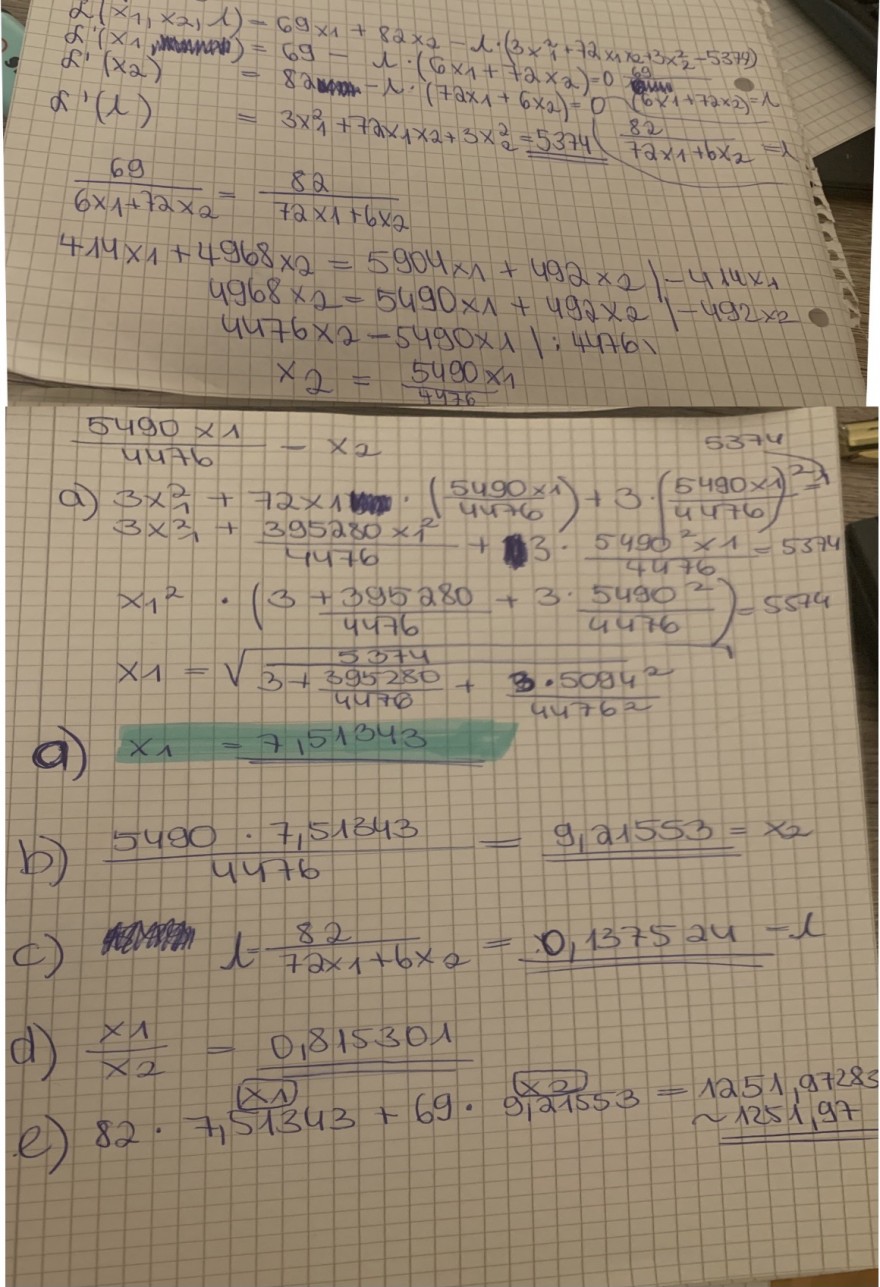 L(x1, x2, l) - 69x1 + 82x2 - l · (3x²1 + 72x1x2 + 3x²2 - 5374)
L'(x1, ) = 69 - l · (6x1 + 72x2) = 0 69
L'(x2) = 82 - l · (72x1 + 6x2) = 0 (6x1 + 72x2) = l
L'(l) = 3x²1 + 72x1x2 + 3x²2 = 5374 82/72x1 + 6x2 = l
69/6x1 + 72x2 = 82/72x1 + 6x2
414x1 + 4968x2 = 5904x1 + 492x2 | - 414x1
4968x2 = 5490x1 + 492x2 | - 492x2
4476x2 - 5490x1 | : 4476
x2 = 5490x1/4476
5490x1/4476 - x2
5374
a) 3x²1 + 72x1 · (5490x1/4476) + 3 · (5490x1/4476)²
3x²1 + 395280x1²/4476 + 3 · 5490²x1/4476 = 5374
x1² · (3 + 395280/4476 + 3 · 5490²/4476) = 5574
x1 = √ 5374/3 + 395280/4476 + 3 · 5094²/4476²
a) x1 = 7,51343
b) 5490 · 7,51343/4476 = 9,21553 = x2
c) l = 82/72x1 + 6x2 = 0,137524 - l
d) x1/x2 = 0,815301
x1 x2
e) 82 · 7,51343 + 69 · 9,21553 = 1251,97283
~ 1251,97